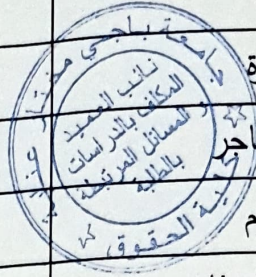 جامعة باجي مختار عنابة
نائب العميد
المكلف بالدراسات
و المسائل المرتبطة
بالطلبة
كلية الحقوق